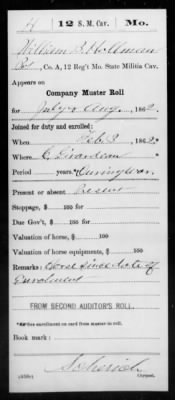 H | 12 S. M. Cav. | Mo.
William B. Hollman
Co. A, 12 Reg't Mo. State Militia Cav.
Appears on
Company Muster Roll
for July & Aug., 1862.
Joined for duty and enrolled:
When Feb. 3, 1862.
Where C. Girardeau
Period years During war.
Present or absent Present
Stoppage, $ 100 for
Due Gov't, $ 100 for
Valuation of horse, $ 100
Valuation of horse equipments, $ 100
Remarks: Horse since date of
Enrolment
FROM SECOND AUDITOR'S ROLL.
*See enrollment on card from muster-in roll.
Book mark:
Copyist.